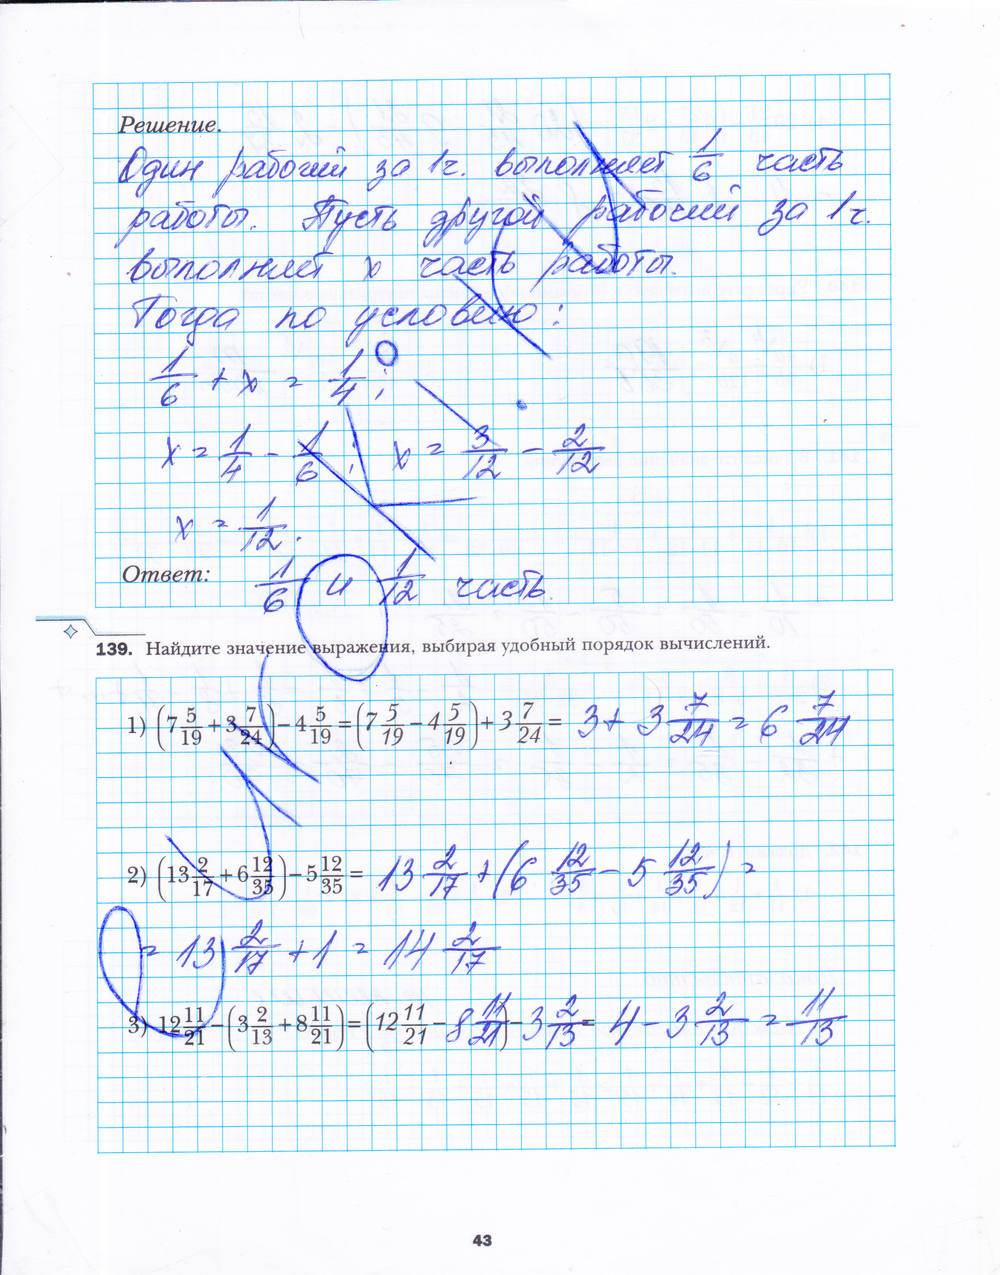 Решение.
Один рабочий за 1ч. выполняет 1/6 часть
работы. Пусть другой рабочий за 1ч.
выполняет x часть работы.
Тогда по условию:
1/6 + x = 1/4;
x = 1/4 - 1/6; x = 3/12 - 2/12
x = 1/12.
Ответ: 1/6 и 1/12 часть.
139. Найдите значение выражения, выбирая удобный порядок вычислений.
1) (7 5/19 + 3 7/24) - 4 5/19 = (7 5/19 - 4 5/19) + 3 7/24 = 3 + 3 7/24 = 6 7/24
2) (13 2/17 + 6 12/35) - 5 12/35 = 13 2/17 + (6 12/35 - 5 12/35) =
= 13 2/17 + 1 = 14 2/17
3) 12 11/21 - (3 2/13 + 8 11/21) = (12 11/21 - 8 11/21) - 3 2/13 = 4 - 3 2/13 = 11/13
43